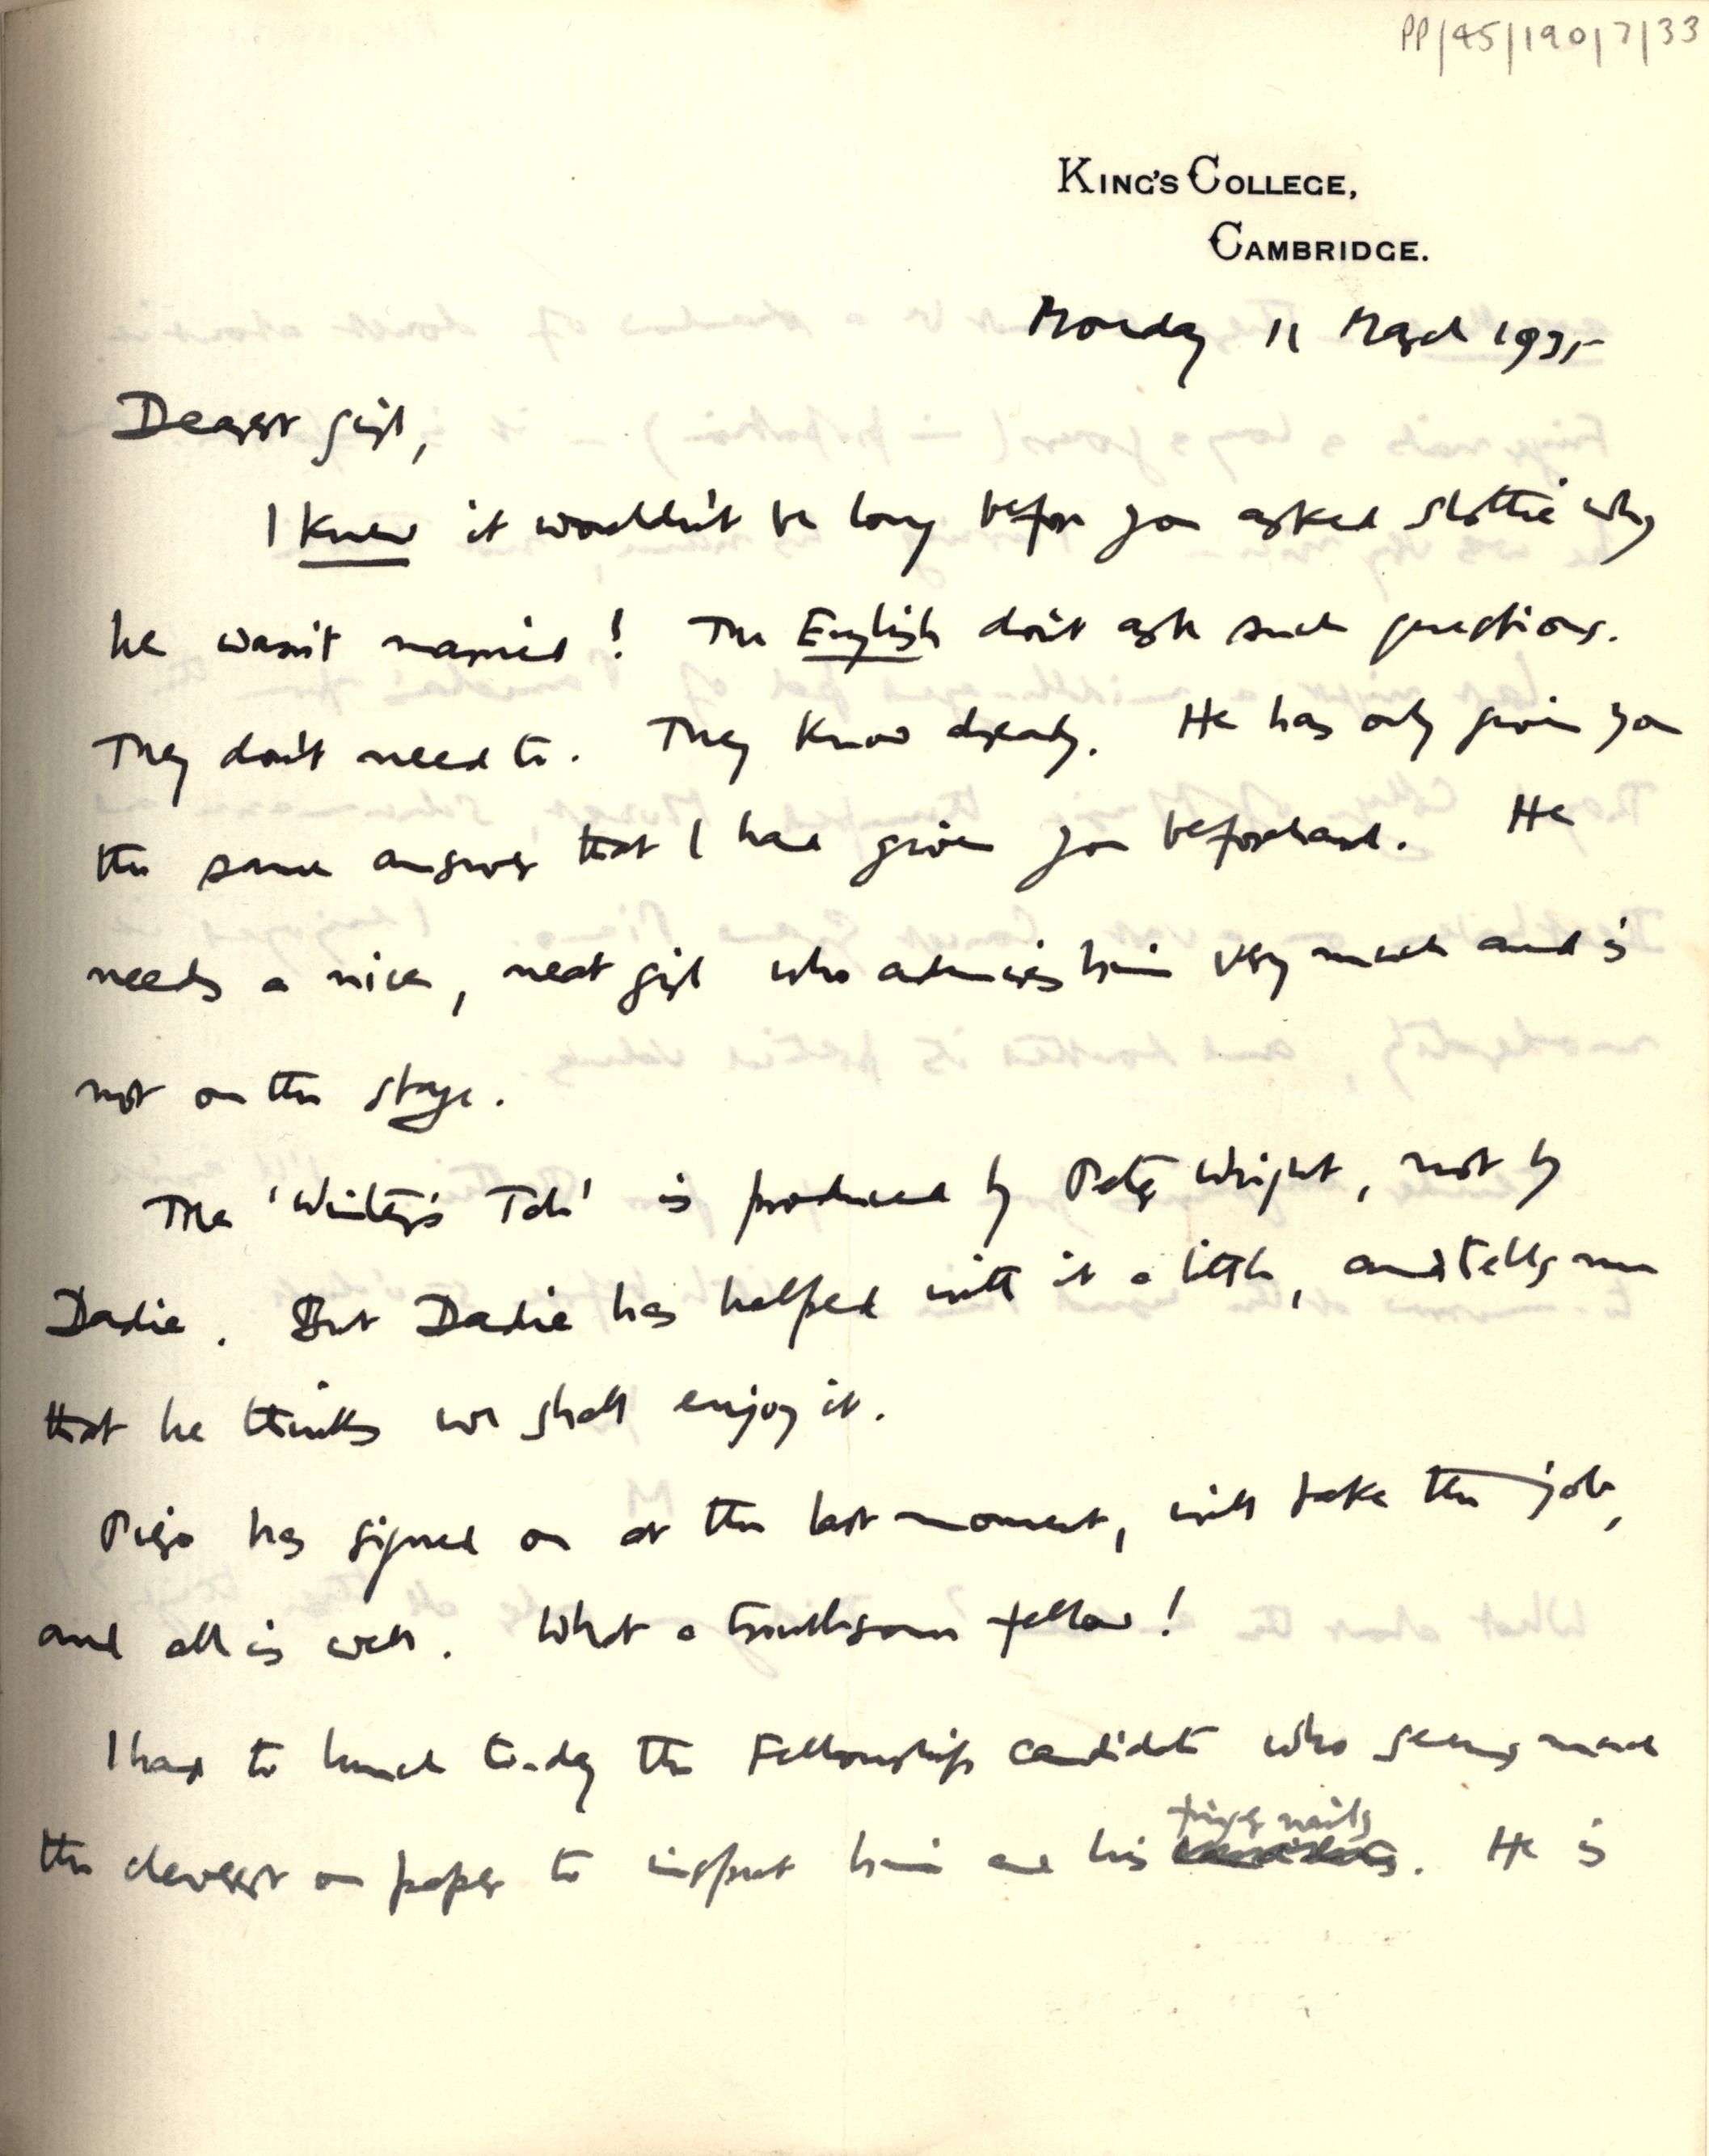 PP/45/190/7/33
KING'S COLLEGE,
CAMBRIDGE.
Monday 11 March 1935
Dearest girl,
I knew it wouldn't be long before you asked Slottie why
he wasn't married! The English don't ask such questions.
They don't need to. They know already. He has only given you
the same answer that I had given you beforehand. He
needs a nice, neat girl who admires him very much and is
not on the stage.
The 'Winter's Tale' is produced by Peter Wright, not by
Dadie. But Dadie has helped with it a little, and tells me
that he thinks we shall enjoy it.
Piero has signed on at the last moment, will take the job,
and all is well. What a troublesome fellow!
I had to lunch to-day the Fellowship candidate who seems much
the cleverest on paper to inspect him and his finger nails. He is